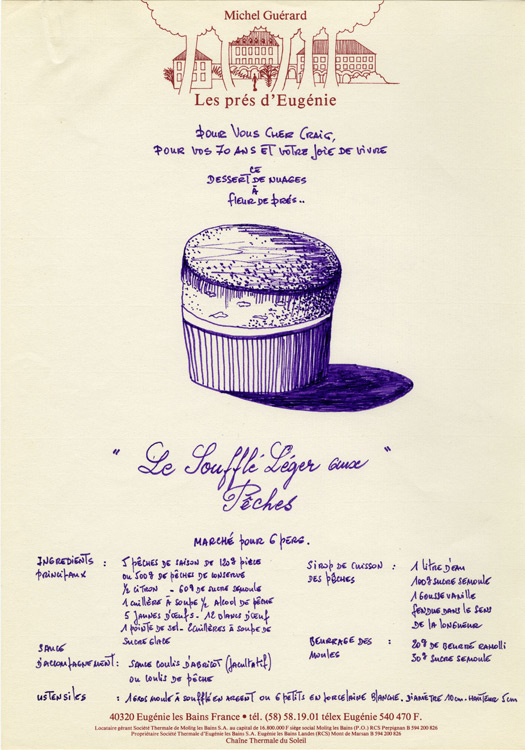 Michel Guérard
Les prés d'Eugénie
POUR VOUS CHER CRAIG,
POUR VOS 70 ANS ET VOTRE JOIE DE VIVRE
CE
DESSERT DE NUAGES
À
FLEUR DE PRÉS..
" Le Soufflé Léger aux "
Pêches
MARCHÉ POUR 6 PERS.
INGREDIENTS PRINCIPAUX :
5 PÊCHES DE SAISON DE 120g PIÈCE
OU 500g DE PÊCHES DE CONSERVE
½ CITRON - 60g DE SUCRE SEMOULE
1 CUILLÈRE À SOUPE ½ ALCOOL DE PÊCHE
5 JAUNES D'ŒUFS - 12 BLANCS D'ŒUF
1 POINTE DE SEL - 2 CUILLÈRES À SOUPE DE
SUCRE GLACE
SAUCE
D'ACCOMPAGNEMENT : SAUCE COULIS D'ABRICOT (FACULTATIF)
OU COULIS DE PÊCHE
SIROP DE CUISSON DES PÊCHES :
1 LITRE D'EAU
100g SUCRE SEMOULE
1 GOUSSE VANILLE
FENDUE DANS LE SENS
DE LA LONGUEUR
BEURRAGE DES MOULES :
20g DE BEURRE RAMOLLI
30g SUCRE SEMOULE
USTENSILES : 1 GROS MOULE À SOUFFLÉ EN ARGENT OU 6 PETITS EN PORCELAINE BLANCHE. DIAMÈTRE 10cm - HAUTEUR 5cm
40320 Eugénie les Bains France • tél. (58) 58.19.01 télex Eugénie 540 470 F.
Locataire gérant Société Thermale de Molitg les Bains S.A. au capital de 16.800.000 F siège social Molitg les Bains (P.O.) RCS Perpignan B 594 200 826
Propriétaire Société Thermale d'Eugénie les Bains S.A. Eugénie les Bains Landes (RCS) Mont de Marsan B 594 200 826
Chaîne Thermale du Soleil